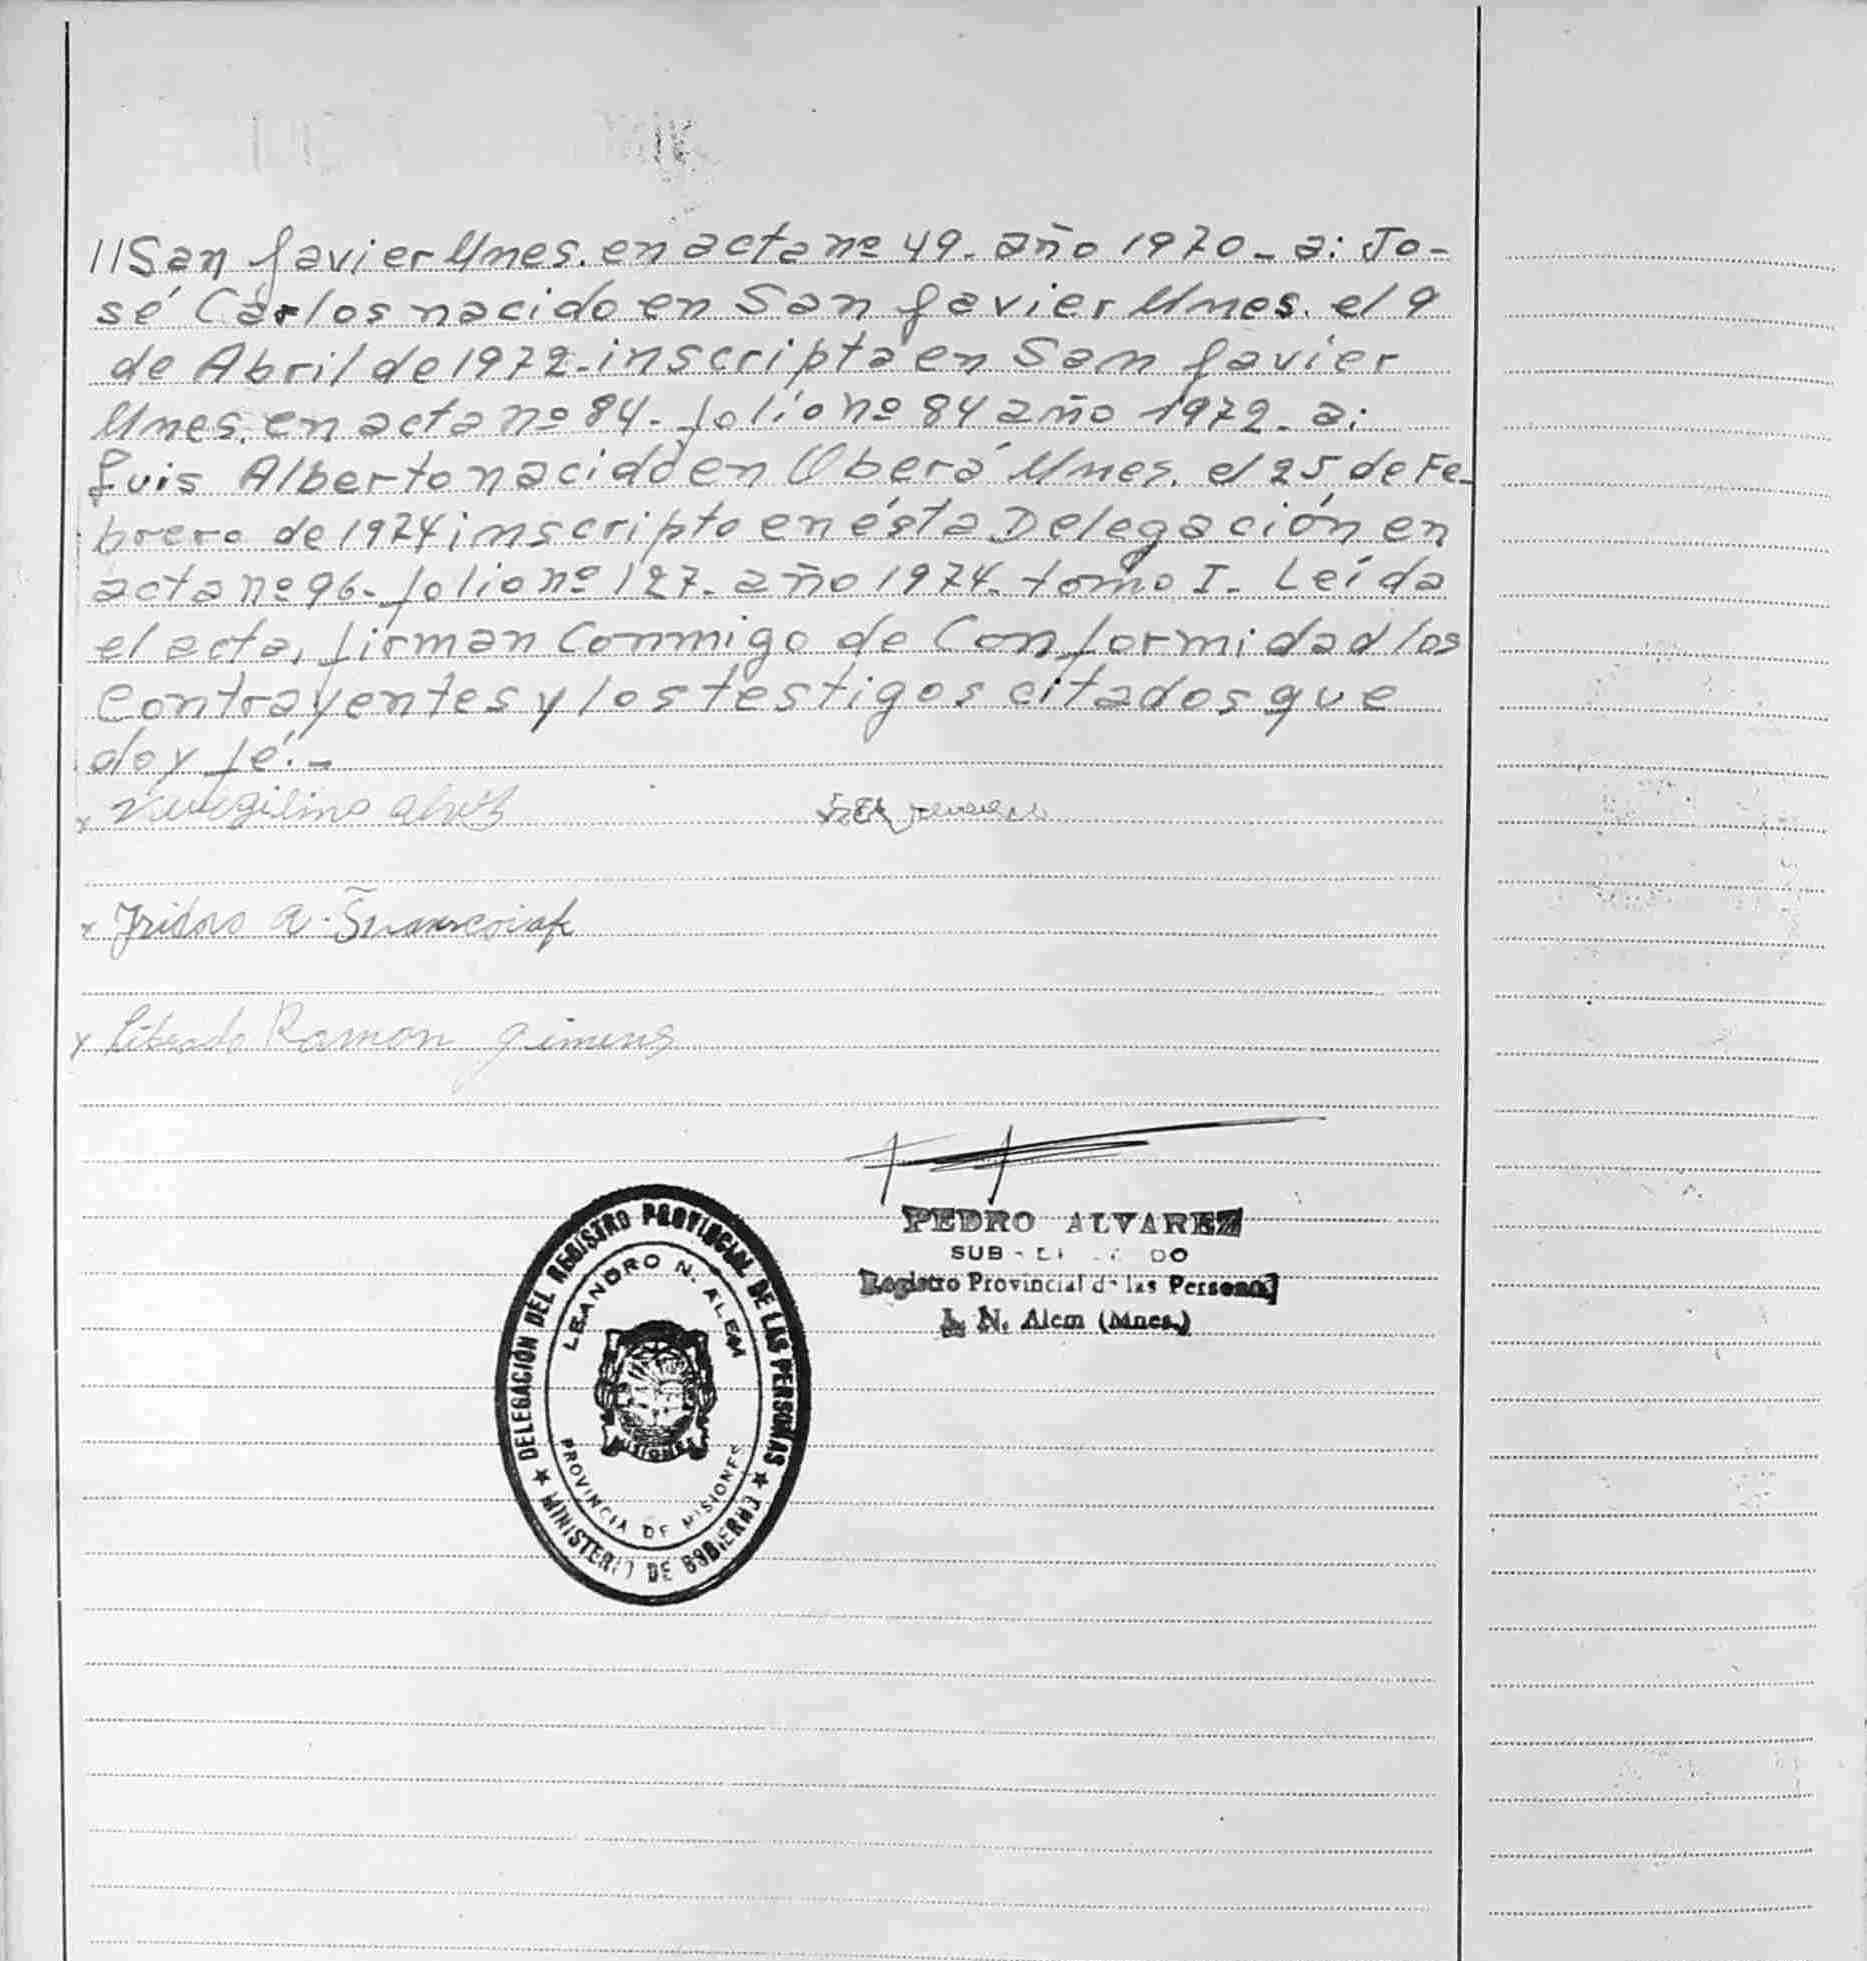 //San Javier Mnes. en acta nº 49. año 1970_ a: Jo-
sé Carlos nacido en San Javier Mnes. el 9
de Abril de 1972-inscripta en San Javier
Mnes. en acta nº 84- folio nº 84 año 1972_ a:
Luis Alberto nacido en Oberá Mnes. el 25 de Fe-
brero de 1974 inscripto en ésta Delegación en
acta nº 96- folio nº 127- año 1974- tomo I- Leída
el acta, firman conmigo de conformidad los
contrayentes y los testigos citados que
doy fé.-
x
x A.
x Librado Ramon Gimens
PEDRO ALVAREZ
SUB -
Registro Provincial de las Personas
L. N. Alem (Mnes.)
DELEGACIÓN DEL REGISTRO PROVINCIAL DE LAS PERSONAS
LEANDRO N. ALEM
MISIONES
PROVINCIA DE MISIONES
★ MINISTERIO DE GOBIERNO ★